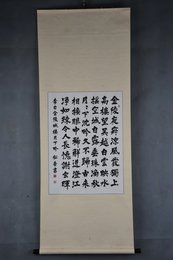 金陵夜寂涼風發獨上
高樓望吳越白雲映水
搖空城白露垂珠滴秋
月々下沈吟久不歸古來
相接眼中稀解道澄江
淨如練令人長憶謝玄暉
李白金陵城樓月下吟